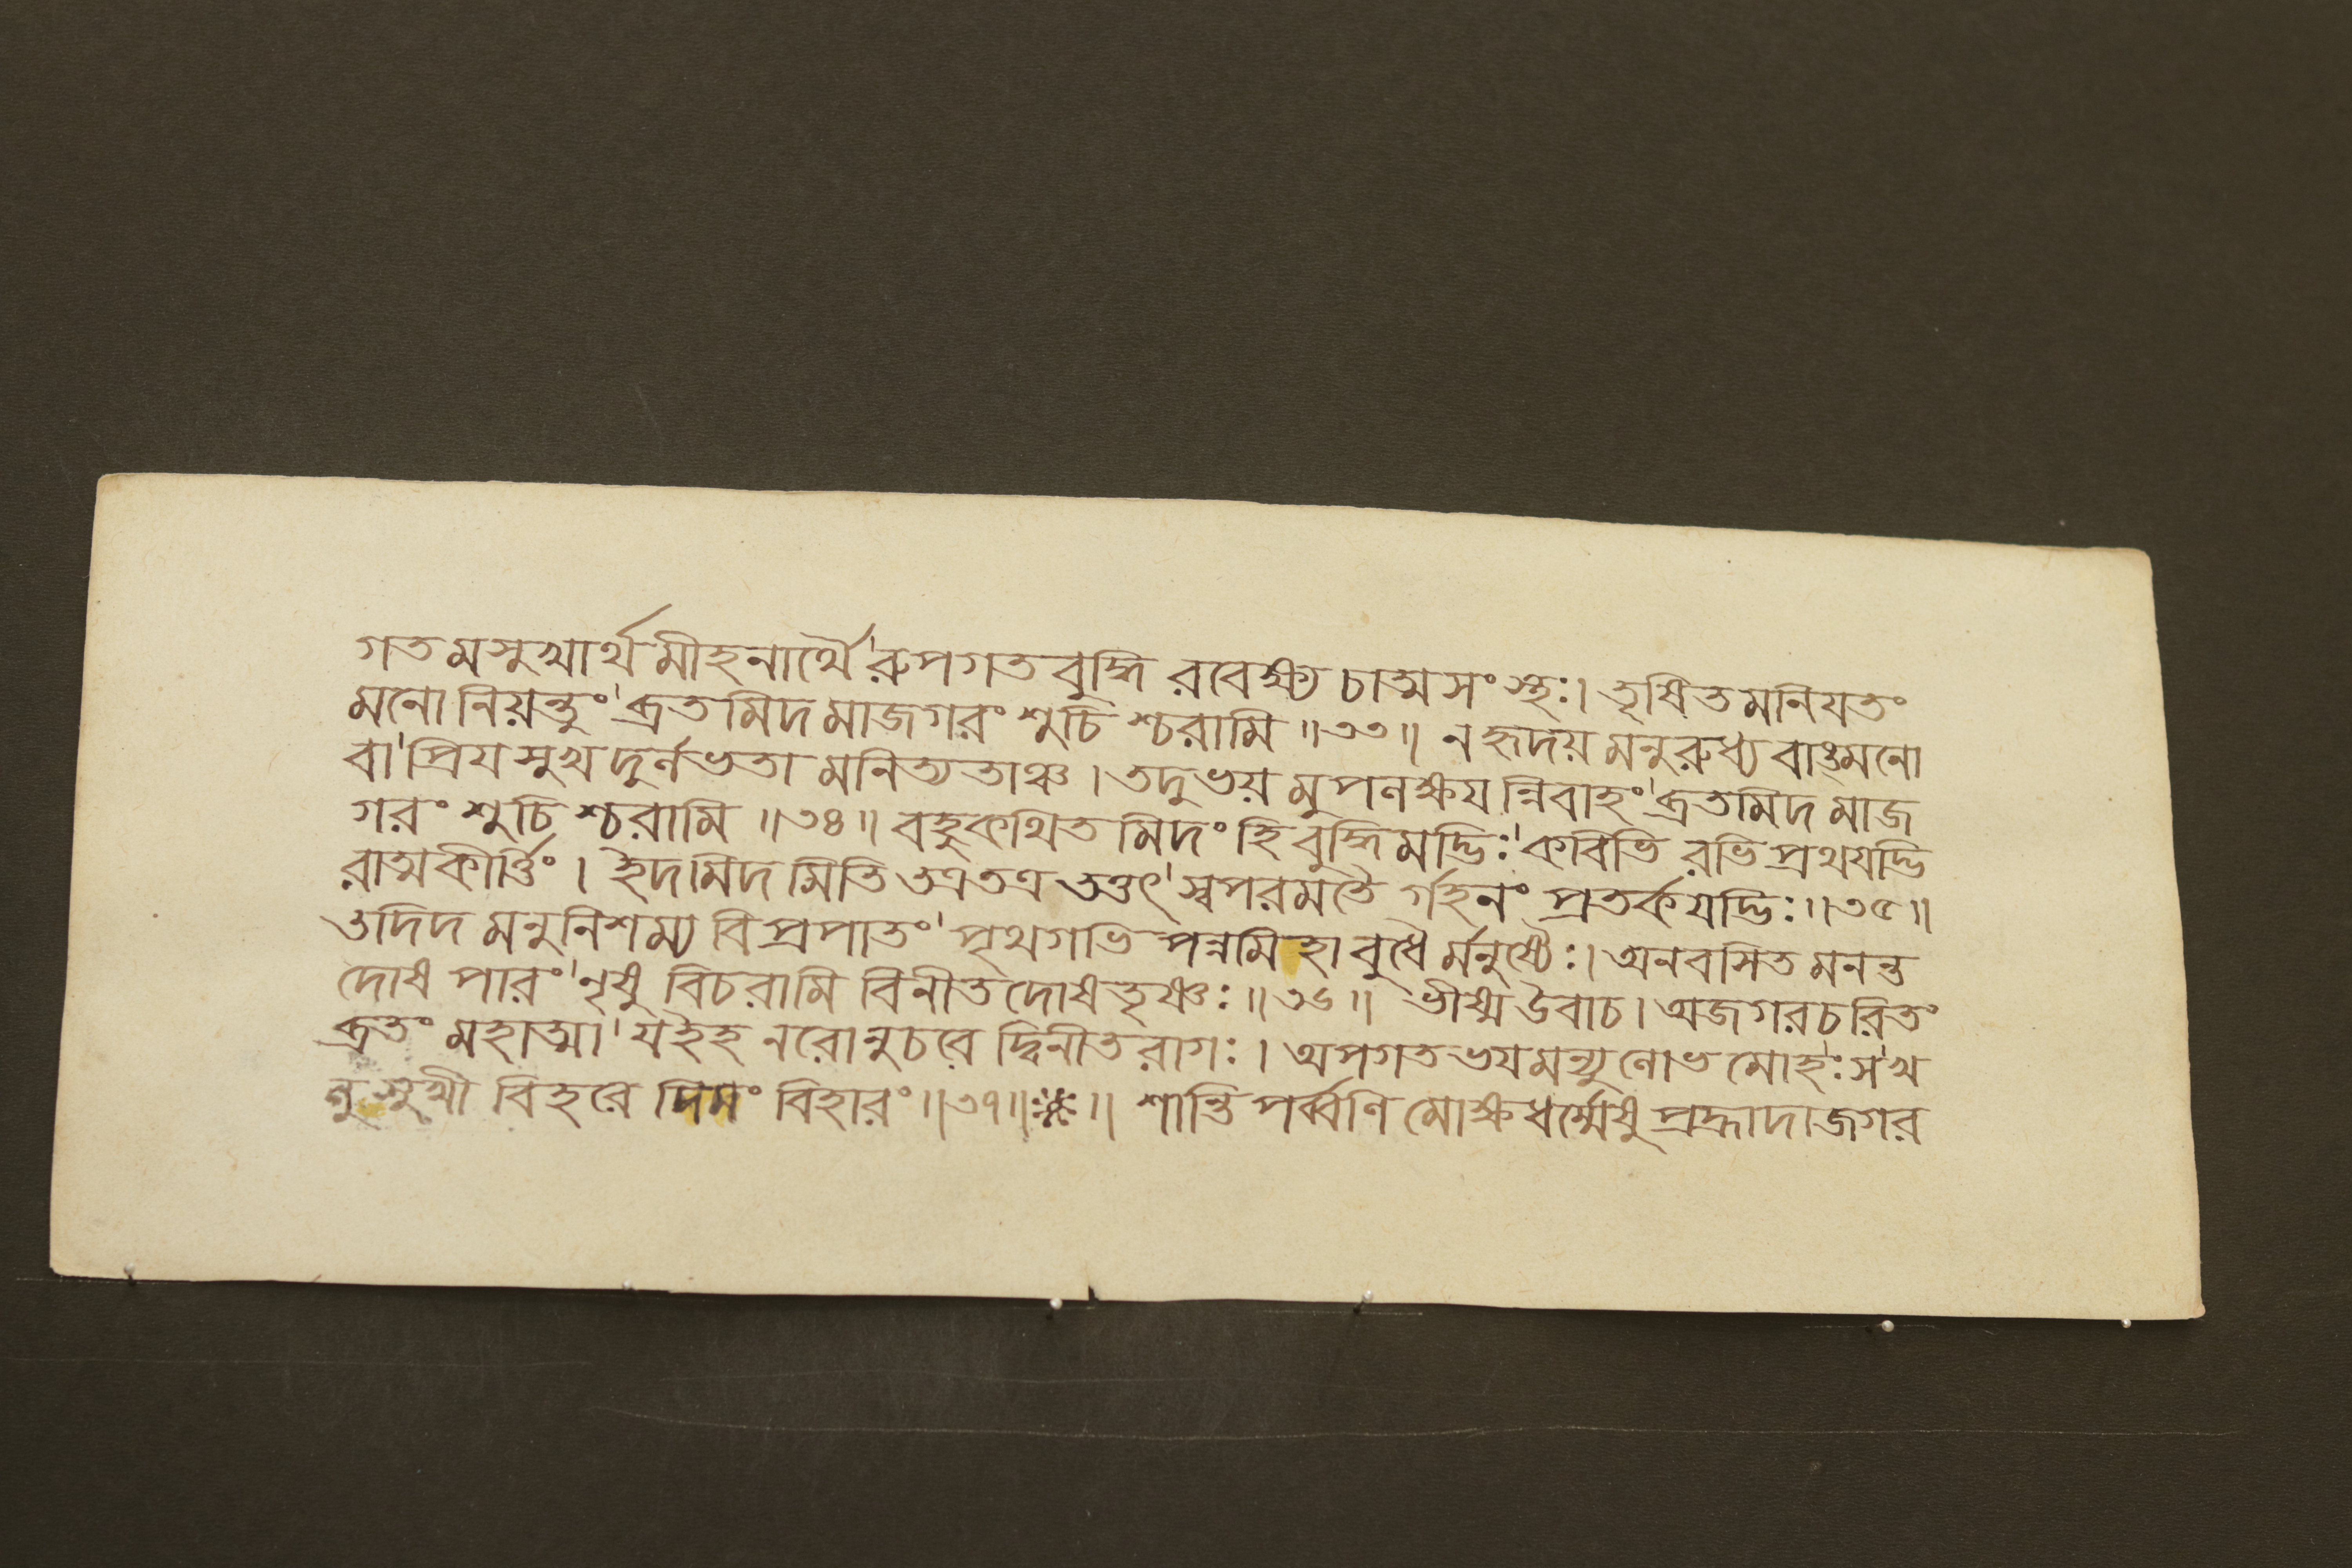 গতমসুখার্থমীহনার্থৈ'রুপগতবুদ্ধি রবেক্ষ্য চাত্মসংস্থঃ। তৃষিতমনিযতং
মনোনিয়ন্তুং'ব্রতমিদমাজগরং শুচিশ্চরামি॥৩৩॥ ন হৃদয়মনুরুধ্য বাঙ্মনো
বা'প্রিযসুখদুর্লভতামনিত্যতাঞ্চ। তদুভয়মুপলক্ষযন্নিবাহং'ব্রতমিদমাজ
গরং শুচিশ্চরামি॥৩৪॥ বহুকথিতমিদংহি বুদ্ধিমদ্ভিঃ'কবিভি রভিপ্রথযদ্ভি
রাত্মকীর্ত্তিং। ইদমিদমিতি তত্রতত্র তত্তৎ'স্বপরমতৈ র্গহনং প্রতর্কযদ্ভিঃ॥৩৫॥
তদিদমনুনিশম্য বিপ্রপাতং'পৃথগভিপন্নমিহাবুধৈ র্মনুষ্যৈঃ। অনবসিতমনন্ত
দোষপারং'নৃষু বিচরামি বিনীতদোষতৃষ্ণঃ॥৩৬॥ ভীষ্ম উবাচ। অজগরচরিতং
ব্রতং মহাত্মা'যইহ নরোনুচরে দ্বিনীতরাগঃ। অপগতভযমন্যুলোভমোহঃ'সখ
লু সুখী বিহরে দিমং বিহারং॥৩৭॥※॥ শান্তিপর্ব্বণি মোক্ষধর্ম্মেষু প্রহ্লাদাজগর